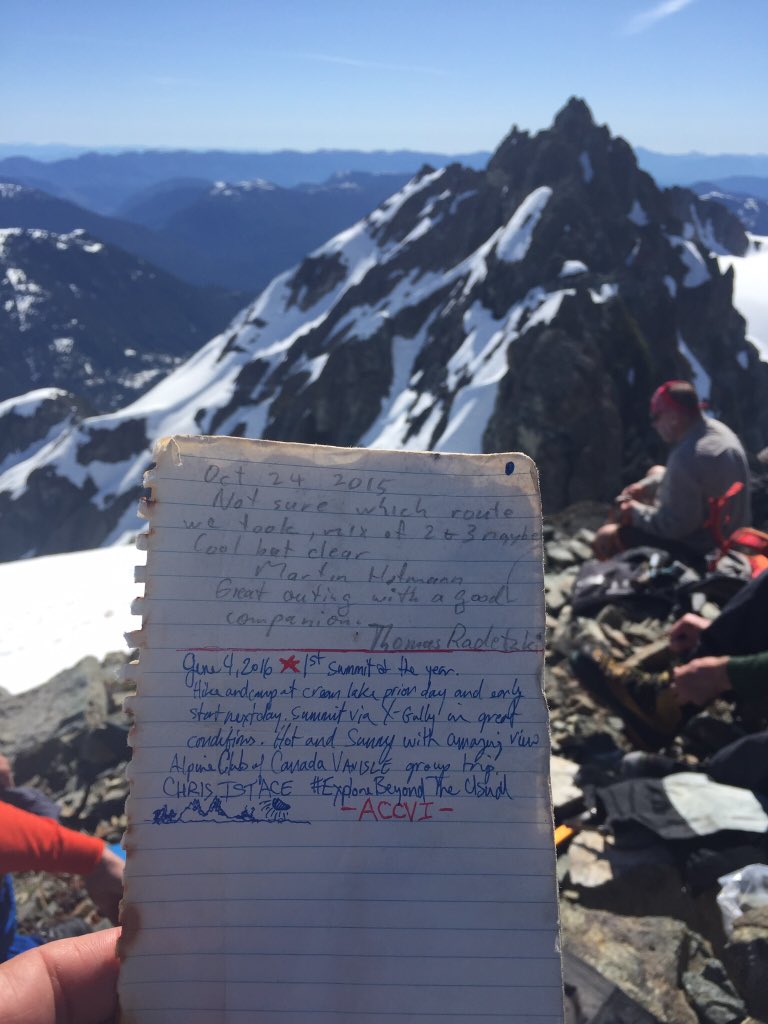 Oct 24 2015
Not sure which route
we took, mix of 2 & 3 maybe
Cool but clear
Martin Hofmann
Great outing with a good
companion.
Thomas Radetzki
June 4, 2016 ★ 1st summit of the year.
Hike and camp at cream lake prior day and early
start next day. Summit via X-Gully in great
conditions. Hot and Sunny with amazing view
Alpine Club of Canada VANISLE group trip.
CHRIS ISTACE #ExploreBeyondTheUsual
-ACCVI-